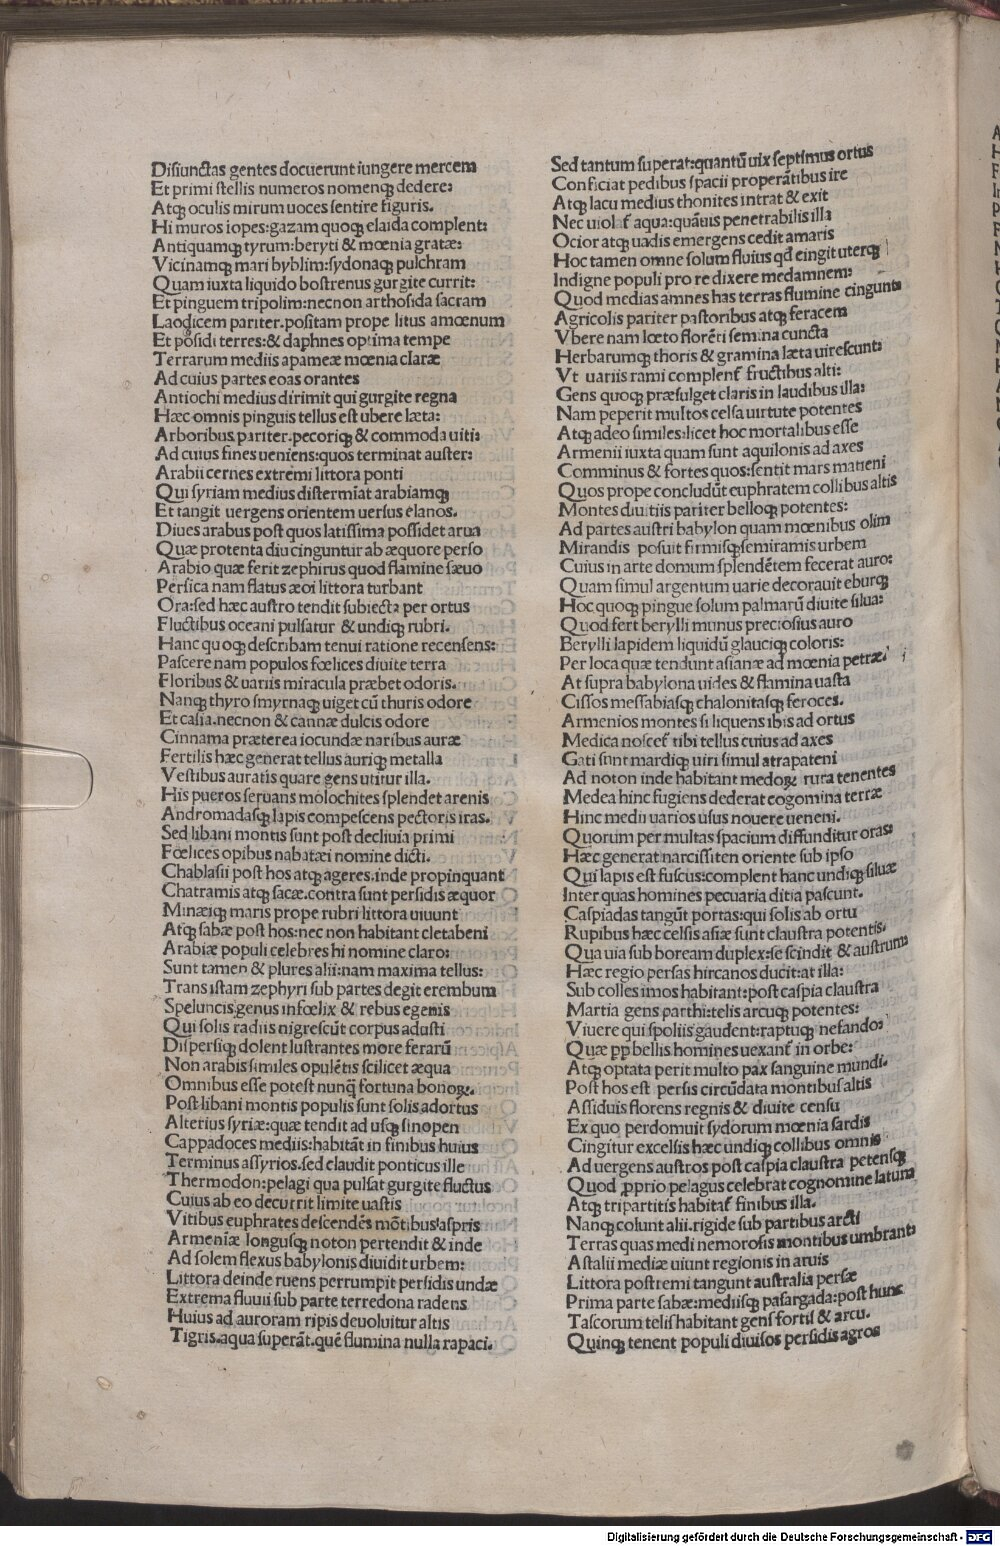 Disiunctas gentes docuerunt iungere mercem
Et primi stellis numeros nomenqꝫ dedere:
Atqꝫ oculis mirum uoces sentire figuris.
Hi muros iopes:gazam quoqꝫ elaida complent:
Antiquamqꝫ tyrum:beryti & mœnia gratæ:
Vicinamqꝫ mari byblim:sydonaqꝫ pulchram
Quam iuxta liquido bostrenus gurgite currit:
Et pinguem tripolim:necnon arthosida sacram
Laodicem pariter.positam prope litus amœnum
Et posidi terres:& daphnes optima tempe
Terrarum mediis apameæ mœnia claræ
Ad cuius partes eoas orantes
Antiochi medius dirimit qui gurgite regna
Hæc omnis pinguis tellus est ubere læta:
Arboribus pariter.pecoriqꝫ & commoda uiti:
Ad cuius fines ueniens:quos terminat auster:
Arabii cernes extremi littora ponti
Qui syriam medius distermīat arabiamqꝫ
Et tangit uergens orientem uersus elanos.
Diues arabus post quos latissima possidet arua
Quæ protenta diu cinguntur ab æquore perso
Arabio quæ ferit zephirus quod flamine sæuo
Persica nam flatus æoi littora turbant
Ora:sed hæc austro tendit subiecta per ortus
Fluctibus oceani pulsatur & undiqꝫ rubri.
Hanc quoqꝫ describam tenui ratione recensens:
Pascere nam populos fœlices diuite terra
Floribus & uariis miracula præbet odoris.
Nanqꝫ thyro smyrnaqꝫ uiget cū thuris odore
Et casia.necnon & cannæ dulcis odore
Cinnama præterea iocundæ naribus auræ
Fertilis hæc generat tellus auriqꝫ metalla
Vestibus auratis quare gens utitur illa.
His pueros seruans molochites splendet arenis
Andromadasqꝫ lapis compescens pectoris iras.
Sed libani montis sunt post decliuia primi
Fœlices opibus nabatæi nomine dicti.
Chablasii post hos atqꝫ ageres.inde propinquant
Chatramis atqꝫ sacæ.contra sunt persidis æquor
Minæiqꝫ maris prope rubri littora uiuunt
Atqꝫ sabæ post hos:nec non habitant cletabeni
Arabiæ populi celebres hi nomine claro:
Sunt tamen & plures alii:nam maxima tellus:
Trans istam zephyri sub partes degit erembum
Speluncis.genus infœlix & rebus egenis
Qui solis radiis nigrescūt corpus adusti
Dispersiqꝫ dolent lustrantes more ferarū
Non arabis similes opulētis scilicet æqua
Omnibus esse potest nunqꝫ̄ fortuna bonoꝝ.
Post libani montis populis sunt solis adortus
Alterius syriæ:quæ tendit ad usqꝫ sinopen
Cappadoces mediis:habitāt in finibus huius
Terminus assyrios.sed claudit ponticus ille
Thermodon:pelagi qua pulsat gurgite fluctus
Cuius ab eo decurrit limite uastis
Vitibus euphrates descendēs mōtibus aspris
Armeniæ longusqꝫ noton pertendit & inde
Ad solem flexus babylonis diuidit urbem:
Littora deinde ruens perrumpit persidis undæ
Extrema fluuii sub parte terredona radens
Huius ad auroram ripis deuoluitur altis
Tigris.aqua superāt.quē flumina nulla rapaci.
Sed tantum superat:quantū uix septimus ortus
Conficiat pedibus spacii properātibus ire
Atqꝫ lacu medius thonites intrat & exit
Nec uiolat̄ aqua:quāuis penetrabilis illa
Ocior atqꝫ uadis emergens cedit amaris
Hoc tamen omne solum fluius qd̄ cingit uterqꝫ
Indigne populi pro re dixere medamnem:
Quod medias amnes has terras flumine cingunt:
Agricolis pariter pastoribus atqꝫ feracem
Vbere nam lœto florēti semina cuncta
Herbarumqꝫ thoris & gramina læta uirescunt:
Vt uariis rami complent̄ fructibus alti:
Gens quoqꝫ præfulget claris in laudibus illa:
Nam peperit multos celsa uirtute potentes
Atqꝫ adeo similes:licet hoc mortalibus esse
Armenii iuxta quam sunt aquilonis ad axes
Comminus & fortes quos:sentit mars matieni
Quos prope concludūt euphratem collibus altis
Montes diuitiis pariter belloqꝫ potentes:
Ad partes austri babylon quam mœnibus olim
Mirandis posuit firmisqꝫ semiramis urbem
Cuius in arte domum splendētem fecerat auro:
Quam simul argentum uarie decorauit eburqꝫ
Hoc quoqꝫ pingue solum palmarū diuite silua:
Quod fert berylli munus preciosius auro
Berylli lapidem liquidū glauciqꝫ coloris:
Per loca quæ tendunt asianæ ad mœnia petræ.
At supra babylona uides & flamina uasta
Cissos messabiasqꝫ chalonitasqꝫ feroces.
Armenios montes si liquens ibis ad ortus
Medica noscet̄ tibi tellus cuius ad axes
Gati sunt mardiqꝫ uiri simul atrapateni
Ad noton inde habitant medoꝝ rura tenentes
Medea hinc fugiens dederat cogomina terræ
Hinc medii uarios usus nouere ueneni.
Quorum per multas spacium diffunditur oras:
Hæc generat narcissiten oriente sub ipso
Qui lapis est fuscus:complent hanc undiqꝫ siluæ
Inter quas homines pecuaria ditia pascunt.
Caspiadas tangūt portas:qui solis ab ortu
Rupibus hæc celsis asiæ sunt claustra potentis.
Qua uia sub boream duplex:se scindit & austrum:
Hæc regio persas hircanos ducit:at illa:
Sub colles imos habitant:post caspia claustra
Martia gens parthi:telis arcuqꝫ potentes:
Viuere qui spoliis gaudent:raptuqꝫ nefando:
Quæ pp̄ bellis homines uexant̄ in orbe:
Atqꝫ optata perit multo pax sanguine mundi.
Post hos est persis circūdata montibus altis
Assiduis florens regnis & diuite censu
Ex quo perdomuit sydorum mœnia sardis
Cingitur excelsis hæc undiqꝫ collibus omnis
Ad uergens austros post caspia claustra petensqꝫ
Quod ꝓprio pelagus celebrat cognomine latum
Atqꝫ tripartitis habitat̄ finibus illa.
Nanqꝫ colunt alii.rigide sub partibus arcti
Terras quas medi nemorosis montibus umbrant:
Astalii mediæ uiunt regionis in aruis
Littora postremi tangunt australia persæ
Prima parte sabæ:mediisqꝫ pasargada:post hunc
Tascorum telis habitant gens fortis & arcu.
Quinqꝫ tenent populi diuisos persidis agros
Digitalisierung gefördert durch die Deutsche Forschungsgemeinschaft - DFG